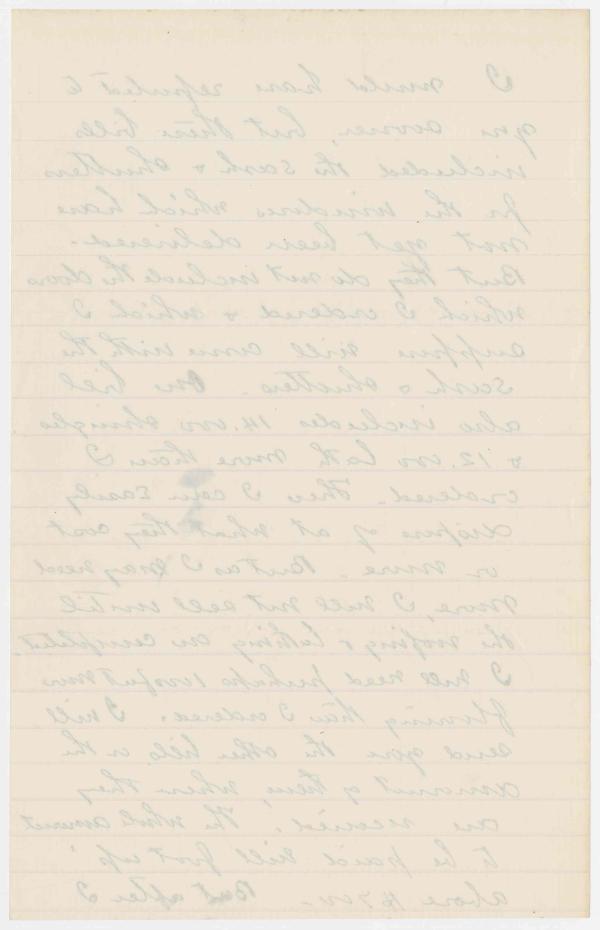 I would have reported to
you sooner, but these bills
included the sash & shutters
for the windows which have
not yet been delivered.
But they do not include the doors
which I ordered & which I
suppose will come with the
sash & shutters. One bill
also includes 14.000 shingles
& 12.000 lath more than I
ordered. These I can easily
dispose of at what they cost
or more. But as I may need
more, I will not sell until
the roofing & lathing are completed.
I will need perhaps 1000 feet more
flooring than I ordered. I will
send you the other bills or the
amount of them, when they
are received. The whole amount
to be paid will foot up
above $700. But after I